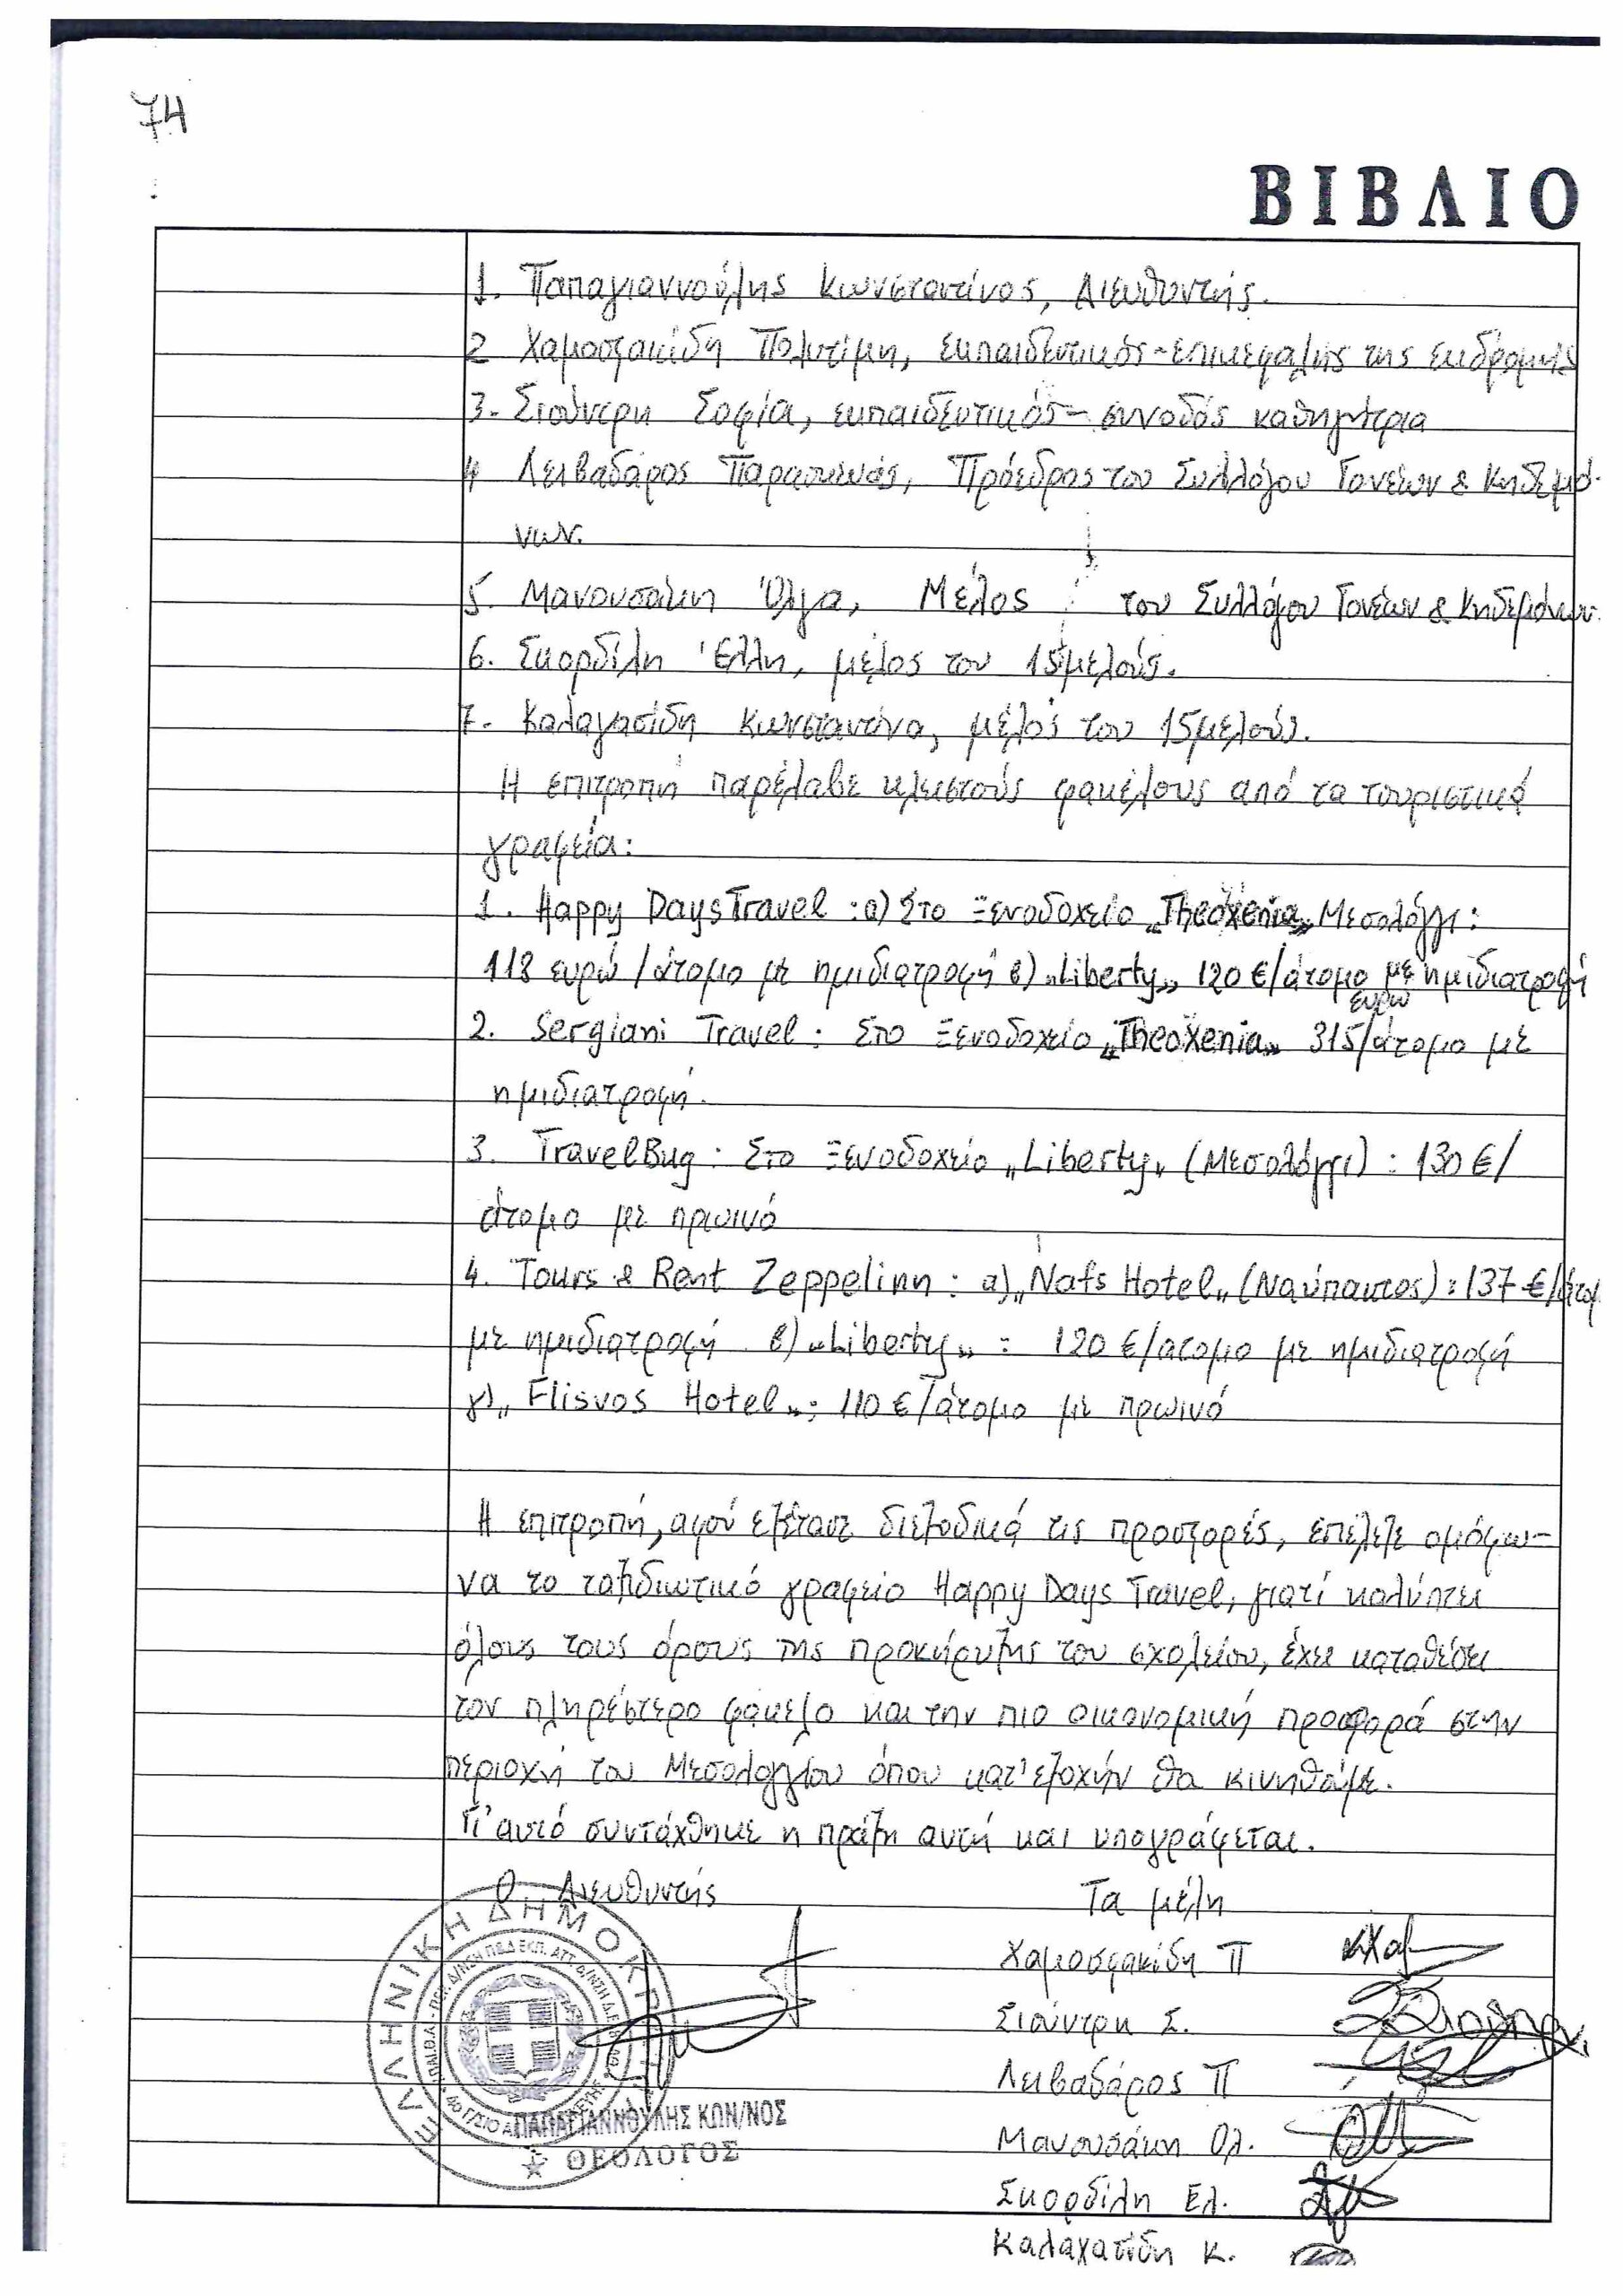 74
ΒΙΒΛΙΟ
1. Παπαγιαννούλης Κωνσταντίνος, Διευθυντής.
2 Χαμοσφακίδη Πολυτίμη, εκπαιδευτικός-επικεφαλής της εκδρομής
3. Σιούντρη Σοφία, εκπαιδευτικός - συνοδός καθηγήτρια
4 Λειβαδάρος Παρασκευάς, Πρόεδρος του Συλλόγου Γονέων & Κηδεμό-
νων.
5. Μανουσάκη Όλγα, Μέλος του Συλλόγου Γονέων & Κηδεμόνων.
6. Σκορδίλη Έλλη, μέλος του 15μελούς.
7. Καλαχασίδη Κωνσταντίνα, μέλος του 15μελούς.
Η επιτροπή παρέλαβε κλειστούς φακέλους από τα τουριστικά
γραφεία:
1. Happy Days Travel : α) Στο Ξενοδοχείο „Theoxenia„ Μεσολόγγι:
118 ευρώ /άτομο με ημιδιατροφή β) „Liberty„ 120 €/άτομο με ημιδιατροφή
2. Sergiani Travel : Στο Ξενοδοχείο „Theoxenia„ 315 ευρώ/άτομο με
ημιδιατροφή.
3. TravelBug : Στο Ξενοδοχείο „Liberty„ (Μεσολόγγι) : 130 €/
άτομο με πρωινό
4. Tours & Rent Zeppelinn : α) „Nafs Hotel„ (Ναύπακτος) : 137 €/άτομ
με ημιδιατροφή β) „Liberty„ : 120 €/ατομο με ημιδιατροφή
γ) „Flisvos Hotel„ : 110 €/άτομο με πρωινό
Η επιτροπή, αφού εξέτασε διεξοδικά τις προσφορές, επέλεξε ομόφω-
να το ταξιδιωτικό γραφείο Happy Days Travel, γιατί καλύπτει
όλους τους όρους της προκήρυξης του σχολείου, έχει καταθέσει
τον πληρέστερο φάκελο και την πιο οικονομική προσφορά στην
περιοχή του Μεσολογγίου όπου κατ'εξοχήν θα κινηθούμε.
Γι'αυτό συντάχθηκε η πράξη αυτή και υπογράφεται.
Ο Διευθυντής Τα μέλη
Χαμοσφακίδη Π
Σιούντρη Σ.
Λειβαδάρος Π
Μανουσάκη Ολ.
Σκορδίλη Ελ.
Καλαχασίδη Κ.
ΕΛΛΗΝΙΚΗ ΔΗΜΟΚΡΑΤΙΑ
ΠΑΠΑΓΙΑΝΝΟΥΛΗΣ ΚΩΝ/ΝΟΣ
ΘΕΟΛΟΓΟΣ